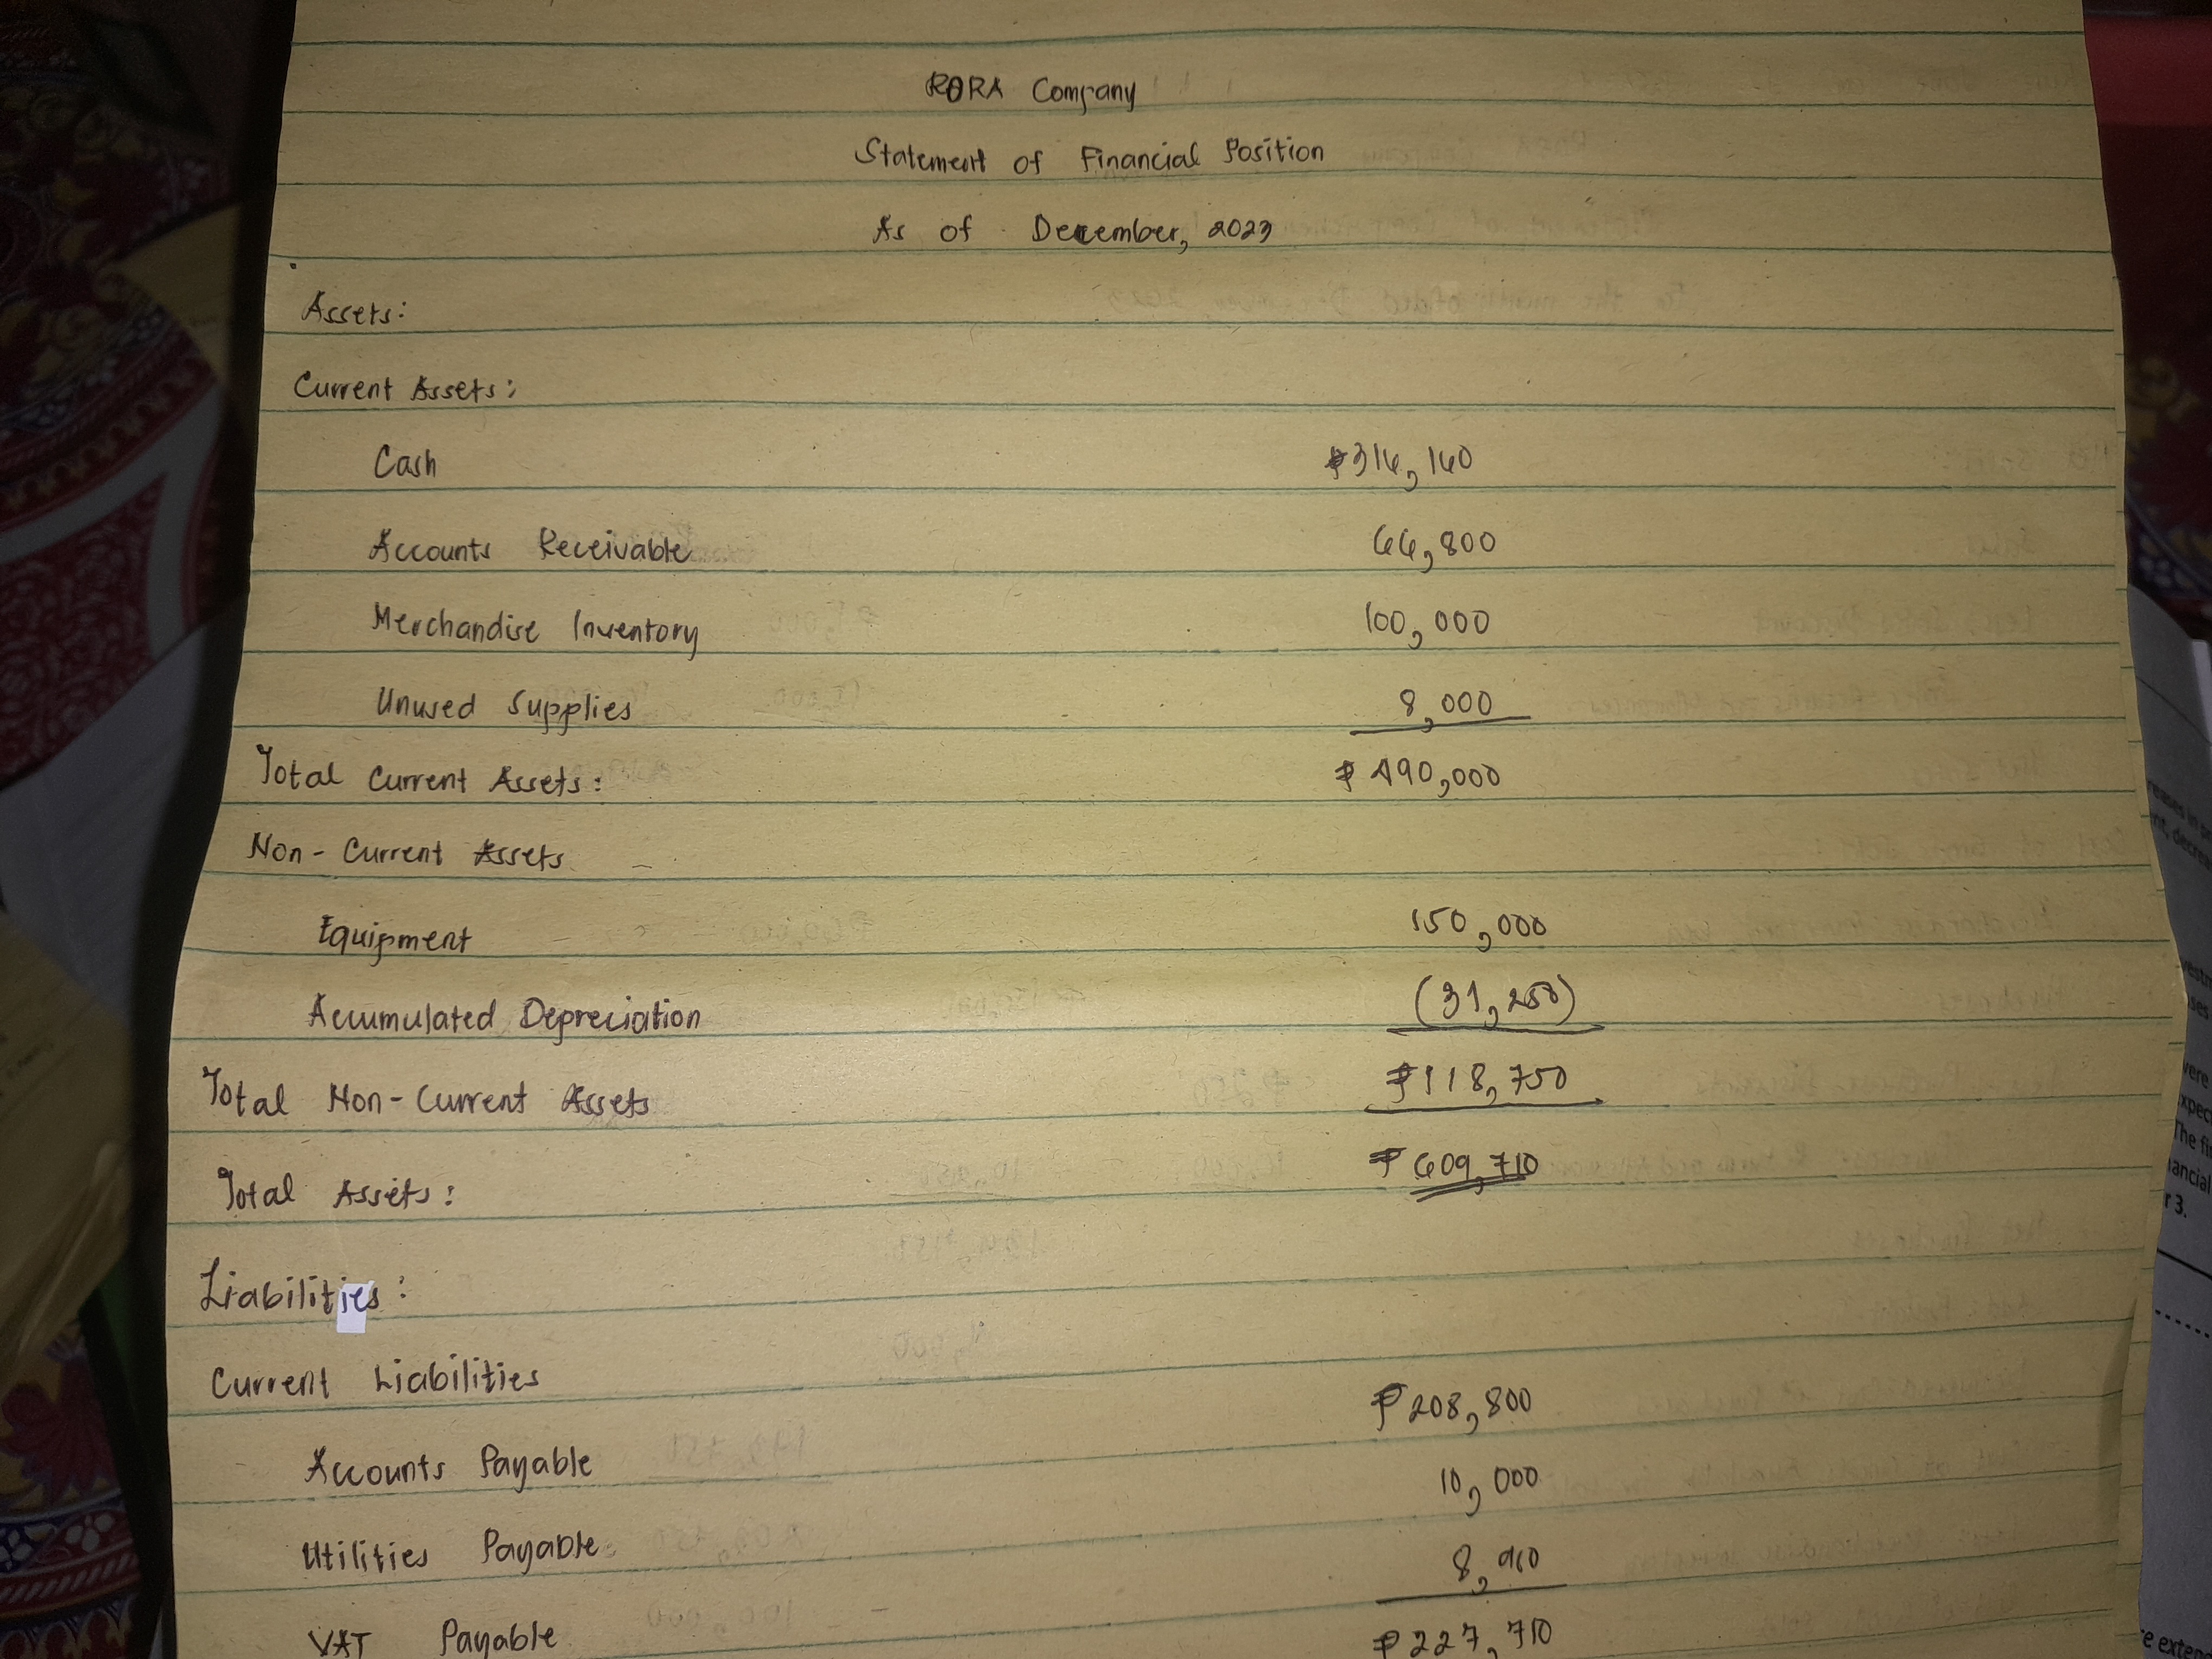 RORA Company
Statement of Financial Position
As of December, 2023
Assets:
Current Assets:
Cash ₱316,160
Accounts Receivable 66,800
Merchandise Inventory 100,000
Unused Supplies 8,000
Total Current Assets: ₱ 490,000
Non-Current Assets
Equipment 150,000
Accumulated Depreciation (31,250)
Total Non-Current Assets ₱118,750
Total Assets: ₱ 609,710
Liabilities:
Current Liabilities
₱208,800
Accounts Payable
10,000
Utilities Payable
8,910
VAT Payable ₱227,710